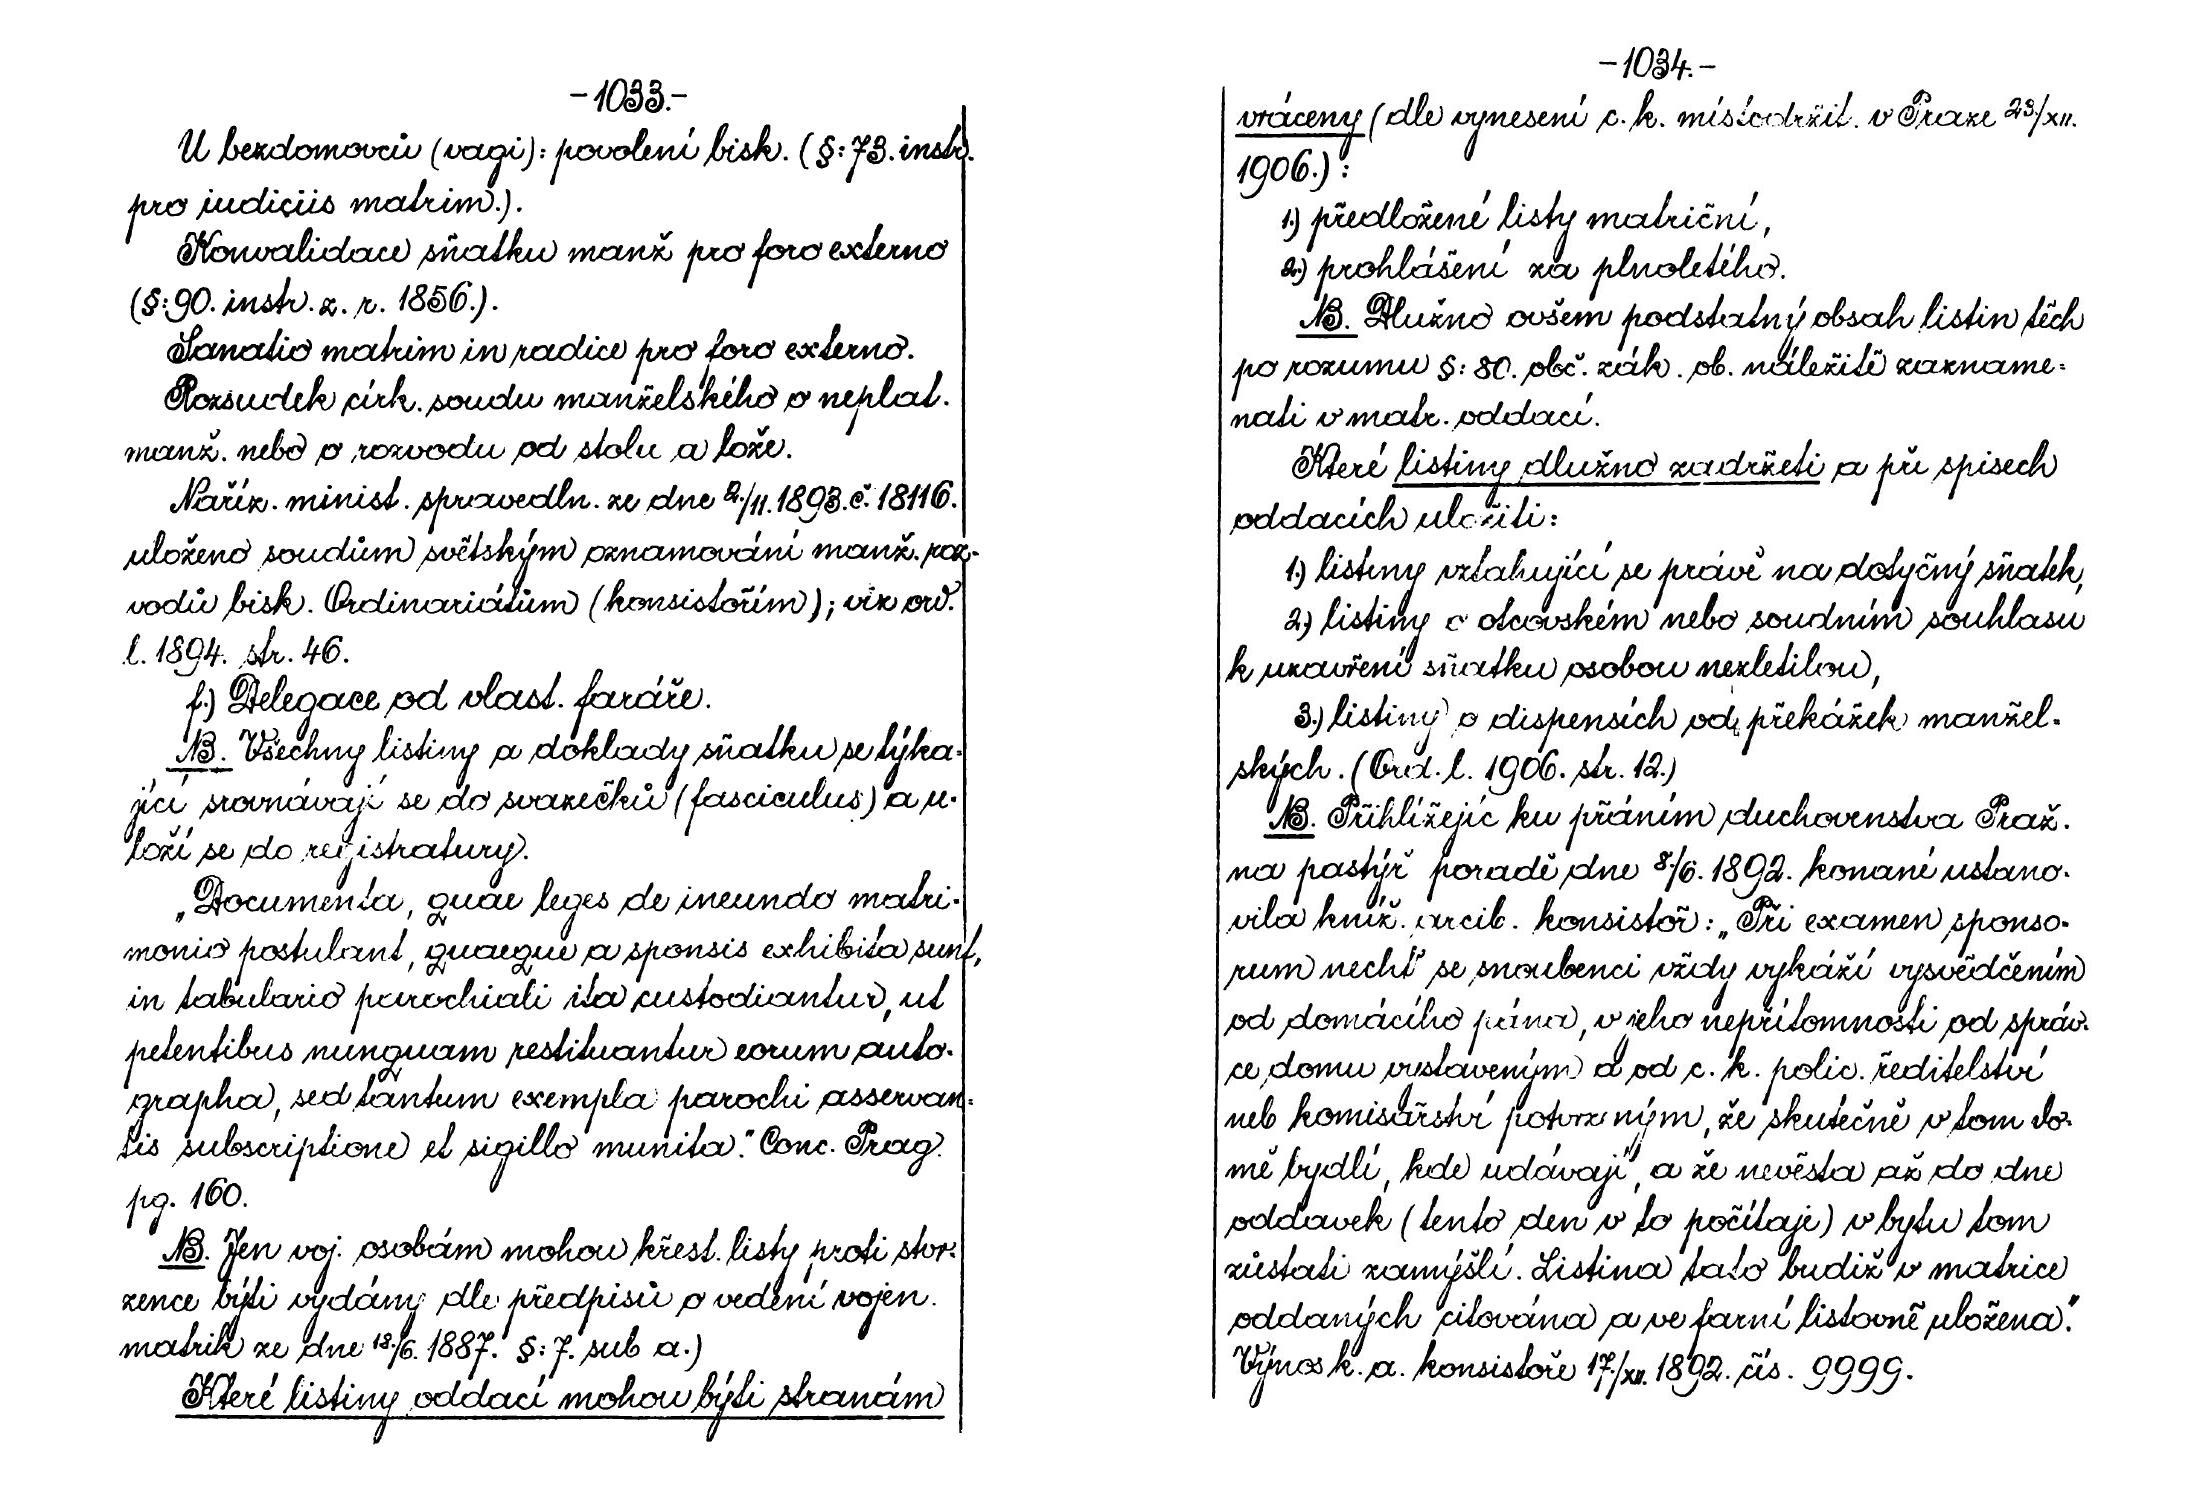 -1033.-
U bezdomovců (vagi): povolení bisk. (§: 73. instr.
pro iudiciis matrim.).
Konvalidace sňatku manž pro foro externo
(§: 90. instr. z. r. 1856.).
Sanatio matrim in radice pro foro externo.
Rozsudek círk. soudu manželského o neplat.
manž. nebo o rozvodu od stolu a lože.
Naříz. minist. spravedln. ze dne 2./11. 1893. č. 18116.
uloženo soudům světským oznamování manž. roz-
vodů bisk. Ordinariátům (konsistořím); viz ord.
l. 1894. str. 46.
f.) Delegace od vlast. faráře.
NB. Všechny listiny a doklady sňatku se týka-
jící srovnávají se do svazečků (fasciculus) a u-
loží se do registratury.
„Documenta, quae leges de ineundo matri-
monio postulant, quaeque a sponsis exhibita sunt,
in tabulario parochiali ita custodiantur, ut
petentibus nunquam restituantur eorum auto-
grapha, sed tantum exempla parochi asservan-
tis subscriptione et sigillo munita." Conc. Prag.
pg. 160.
NB. Jen voj. osobám mohou křest. listy proti stvr-
zence býti vydány dle předpisů o vedení vojen.
matrik ze dne 18./6. 1887. §: 7. sub a.)
Které listiny oddací mohou býti stranám
-1034.-
vráceny (dle vynesení c. k. místodržit. v Praze 23/XII.
1906.):
1.) předložené listy matriční,
2.) prohlášení za plnoletého.
NB. Dlužno ovšem podstatný obsah listin těch
po rozumu §: 80. obč. zák. ob. náležitě zazname-
nati v matr. oddací.
Které listiny dlužno zadržeti a při spisech
oddacích uložiti:
1.) listiny vztahující se právě na dotyčný sňatek,
2.) listiny o otcovském nebo soudním souhlasu
k uzavření sňatku osobou nezletilou,
3.) listiny o dispensích od překážek manžel-
ských. (Ord. l. 1906. str. 12.)
NB. Přihlížejíc ku přáním duchovenstva Praž.
na pastýř poradě dne 8./6. 1892. konané ustano-
vila kníž. arcib. konsistoř: „Při examen sponso-
rum nechť se snoubenci vždy vykáží vysvědčením
od domácího pána, v jeho nepřítomnosti od správ-
ce domu vystaveným a od c. k. polic. ředitelství
neb komisařství potvrzeným, že skutečně v tom do-
mě bydlí, kde udávají, a že nevěsta až do dne
oddavek (tento den v to počítaje) v bytu tom
zůstati zamýšlí. Listina tato budiž v matrice
oddaných citována a ve farní listovně uložena."
Výnos k. a. konsistoře 17./XII. 1892. čís. 9999.